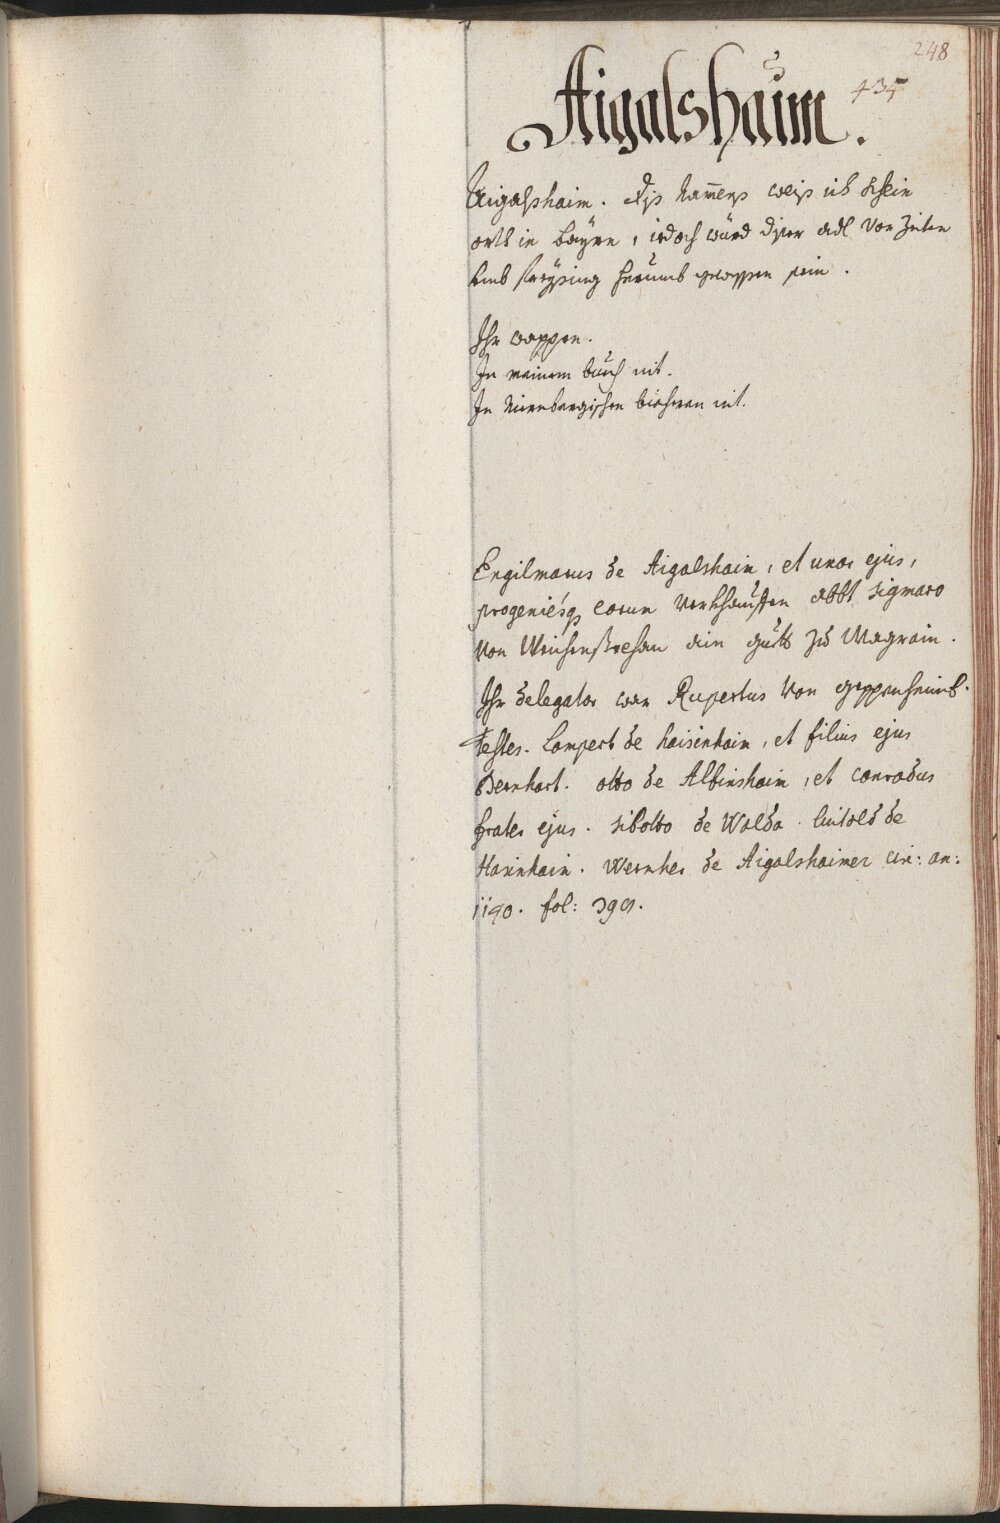 248
435
Aigalshaim.
Aigalshaim. diß Namens weiß ich khein
orth in bayrn, iedoch würd diser adl vor Zeiten
umb freysing herumb gesessen sein.
Ihr wappen.
In meinem buech nit.
In Nürnbergischen biecheren nit.
Engilmarus de Aigalshaim, et uxor ejus,
progeniesq eorum verkhaufften abbt Sigmaro
von Weichenstephan ain guett zu Magrain.
Ihr delegator war Rupertus von geppenhaimb.
Testes. Lampert de haisinhaim, et filius ejus
Bernhart. otto de Albinshaim, et conradus
frater ejus. sibotto de Walda. luitold de
Harinhaim. Wernher de Aigalshaimer cir: an:
1190. fol: